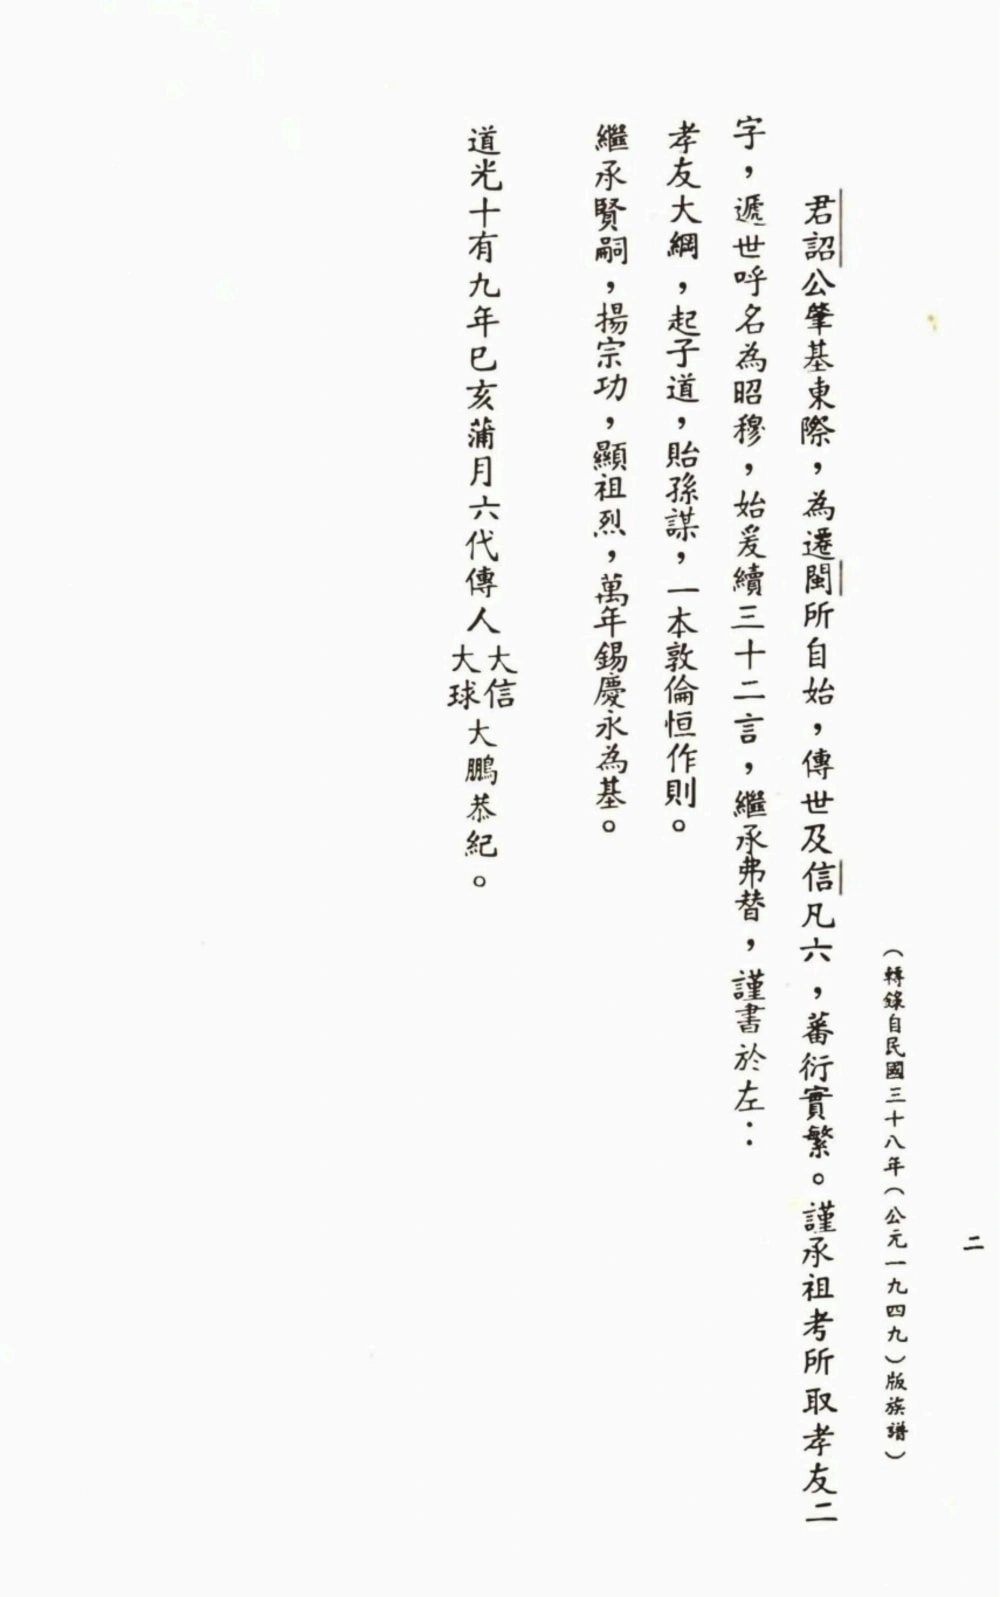 二
（轉錄自民國三十八年（公元一九四九）版族譜）
君詔公肇基東際，為遷閩所自始，傳世及信凡六，蕃衍實繁。謹承祖考所取孝友二
字，遞世呼名為昭穆，始爰續三十二言，繼承弗替，謹書於左：
孝友大綱，起子道，貽孫謀，一本敦倫恒作則。
繼承賢嗣，揚宗功，顯祖烈，萬年錫慶永為基。
道光十有九年巳亥蒲月六代傳人大信大球大鵬恭紀。